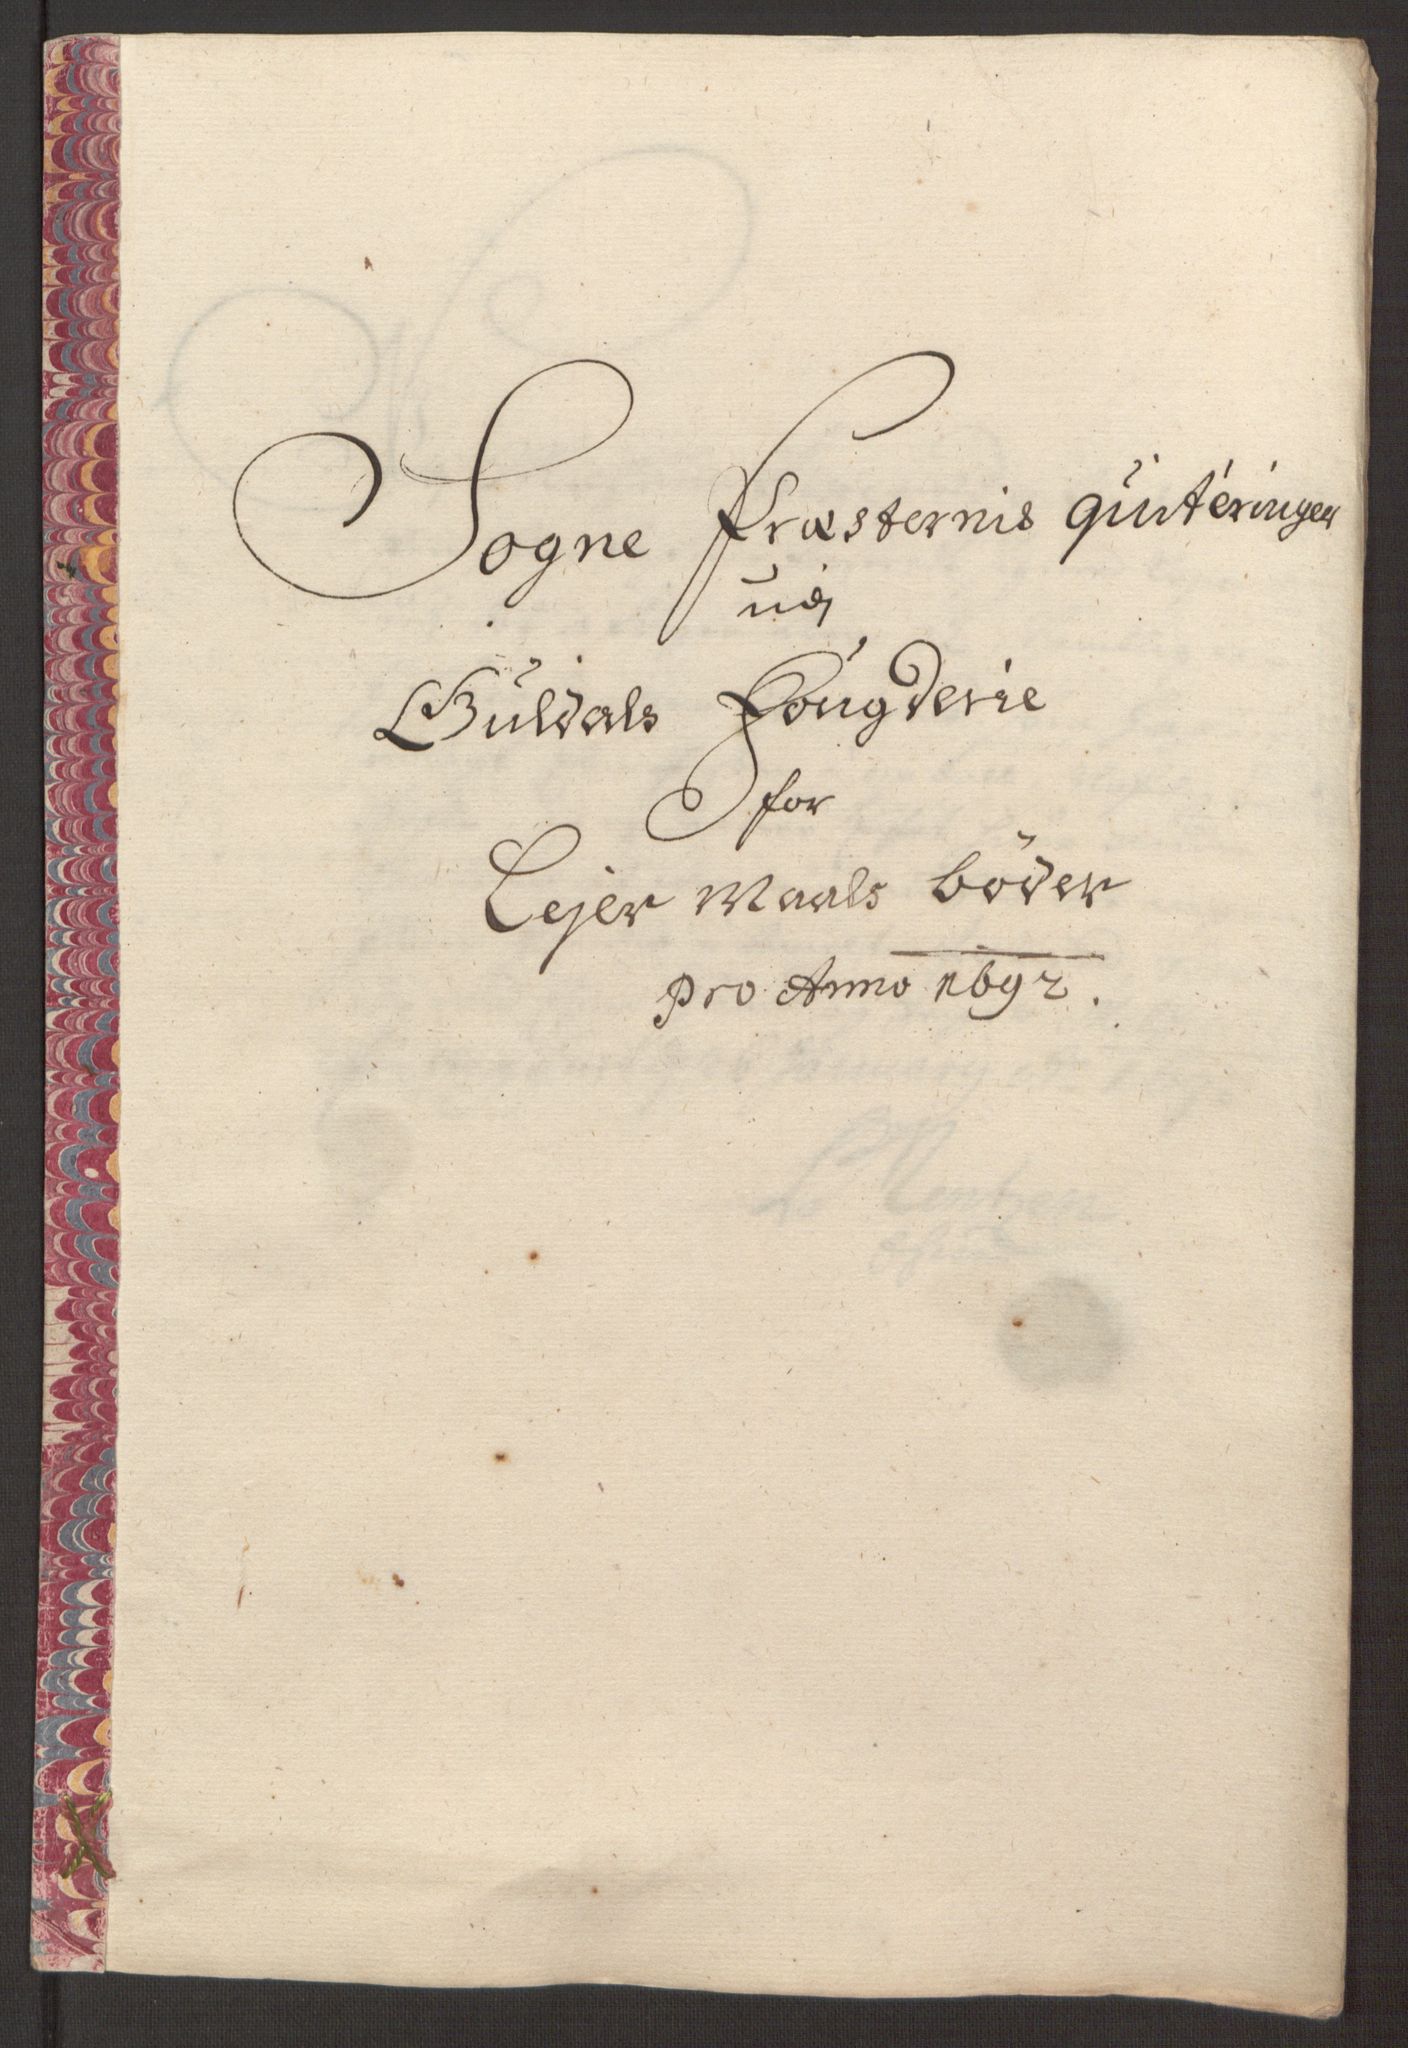 Sogne Præsternis Quiteringer
udj
Guldals Fougderie
for
Lejer Maals böder
pro Anno 1692.